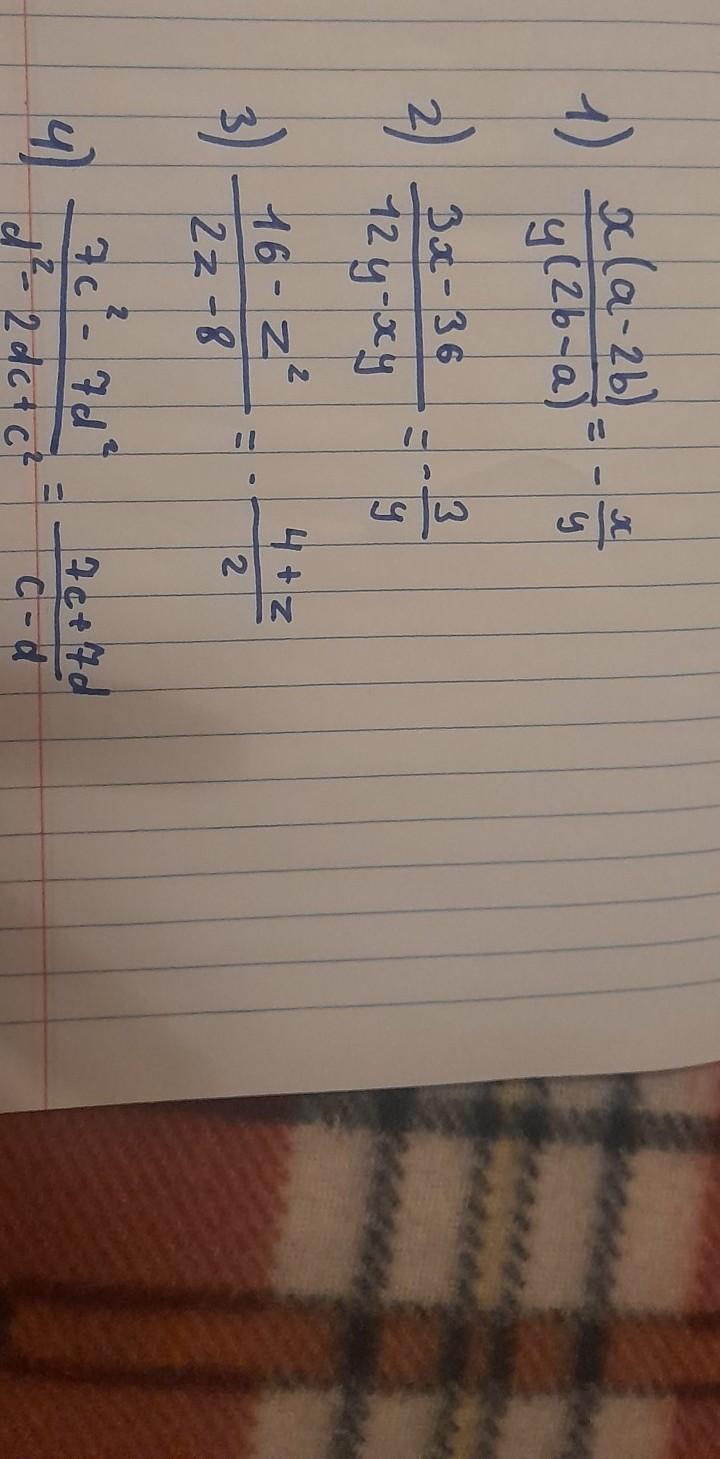 1) x(a-2b)/y(2b-a) = - x/y
2) 3x-36/12y-xy = - 3/y
3) 16-z²/2z-8 = - 4+z/2
4) 7c²-7d²/d²-2dc+c² = 7c+7d/c-d